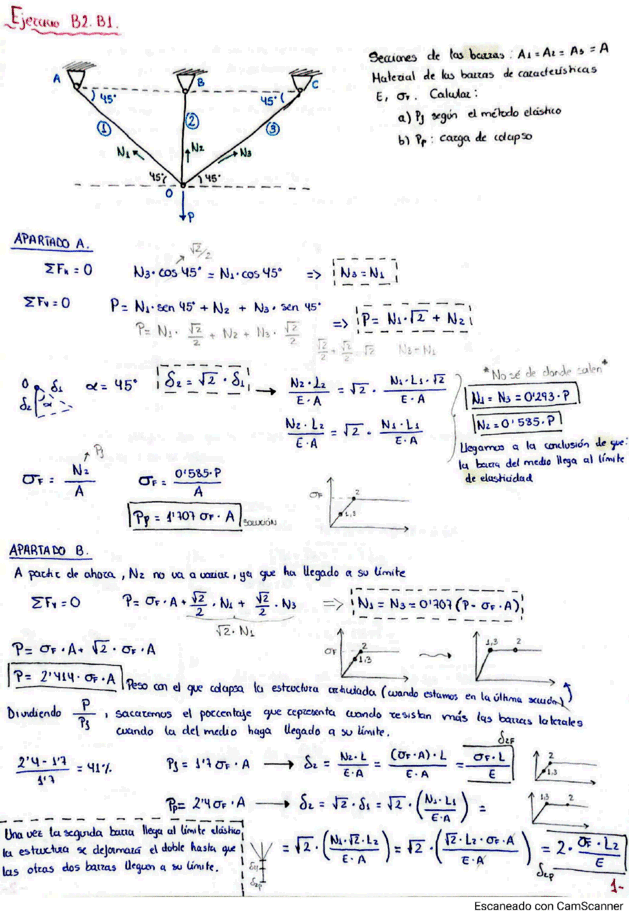 Ejercicio B2.B1.
Secciones de las barras : A1 = A2 = A3 = A
Material de las barras de características
E, σF. Calcular :
a) Pj según el método elástico
b) Pp : carga de colapso
A
B
C
45°
45°
①
②
③
N1
N2
N3
45°
45°
O
P
APARTADO A.
√2/2
ΣFH = 0 N3 · cos 45° = N1 · cos 45° => N3 = N1
ΣFV = 0 P = N1 · sen 45° + N2 + N3 · sen 45°
P = N1 · √2/2 + N2 + N3 · √2/2 => P = N1 · √2 + N2
√2/2 + √2/2 = √2 N3 = N1
*No sé de donde salen*
O δ1 δ2 α α = 45° δ2 = √2 · δ1 → N2 · L2 / E · A = √2 · N1 · L1 · √2 / E · A
N1 = N3 = 0'293 · P
N2 · L2 / E · A = √2 · N1 · L1 / E · A
N2 = 0'585 · P
Llegamos a la conclusión de que:
la barra del medio llega al límite
de elasticidad
Pj
σF = N2 / A σF = 0'585 · P / A
PP = 1'707 σF · A SOLUCIÓN
σF 2 1,3
APARTADO B.
A partir de ahora, N2 no va a variar, ya que ha llegado a su límite
ΣFV = 0 P = σF · A + √2/2 · N1 + √2/2 · N3 => N1 = N3 = 0'707 (P - σF · A)
√2 · N1
P = σF · A + √2 · σF · A
σF 2 1,3 1,3 2
P = 2'414 · σF · A Peso con el que colapsa la estructura articulada (cuando estamos en la última sección)
Dividiendo P / Pj , sacaremos el porcentaje que representa cuando resistan más las barras laterales
cuando la del medio haya llegado a su límite.
δ2F
2'4 - 1'7 / 1'7 = 41% Pj = 1'7 σF · A → δ2 = N2 · L / E · A = (σF · A) · L / E · A = σF · L / E
2 1,3
Pp = 2'4 σF · A → δ2 = √2 · δ1 = √2 · (N1 · L1 / E · A) =
1,3 2
Una vez la segunda barra llega al límite elástico,
la estructura se deformará el doble hasta que
las otras dos barras lleguen a su límite.
= √2 · (N1 · √2 · L2 / E · A) = √2 · (√2 · L2 · σF · A / E · A) = 2 · σF · L2 / E
δ2p
1-
Escaneado con CamScanner